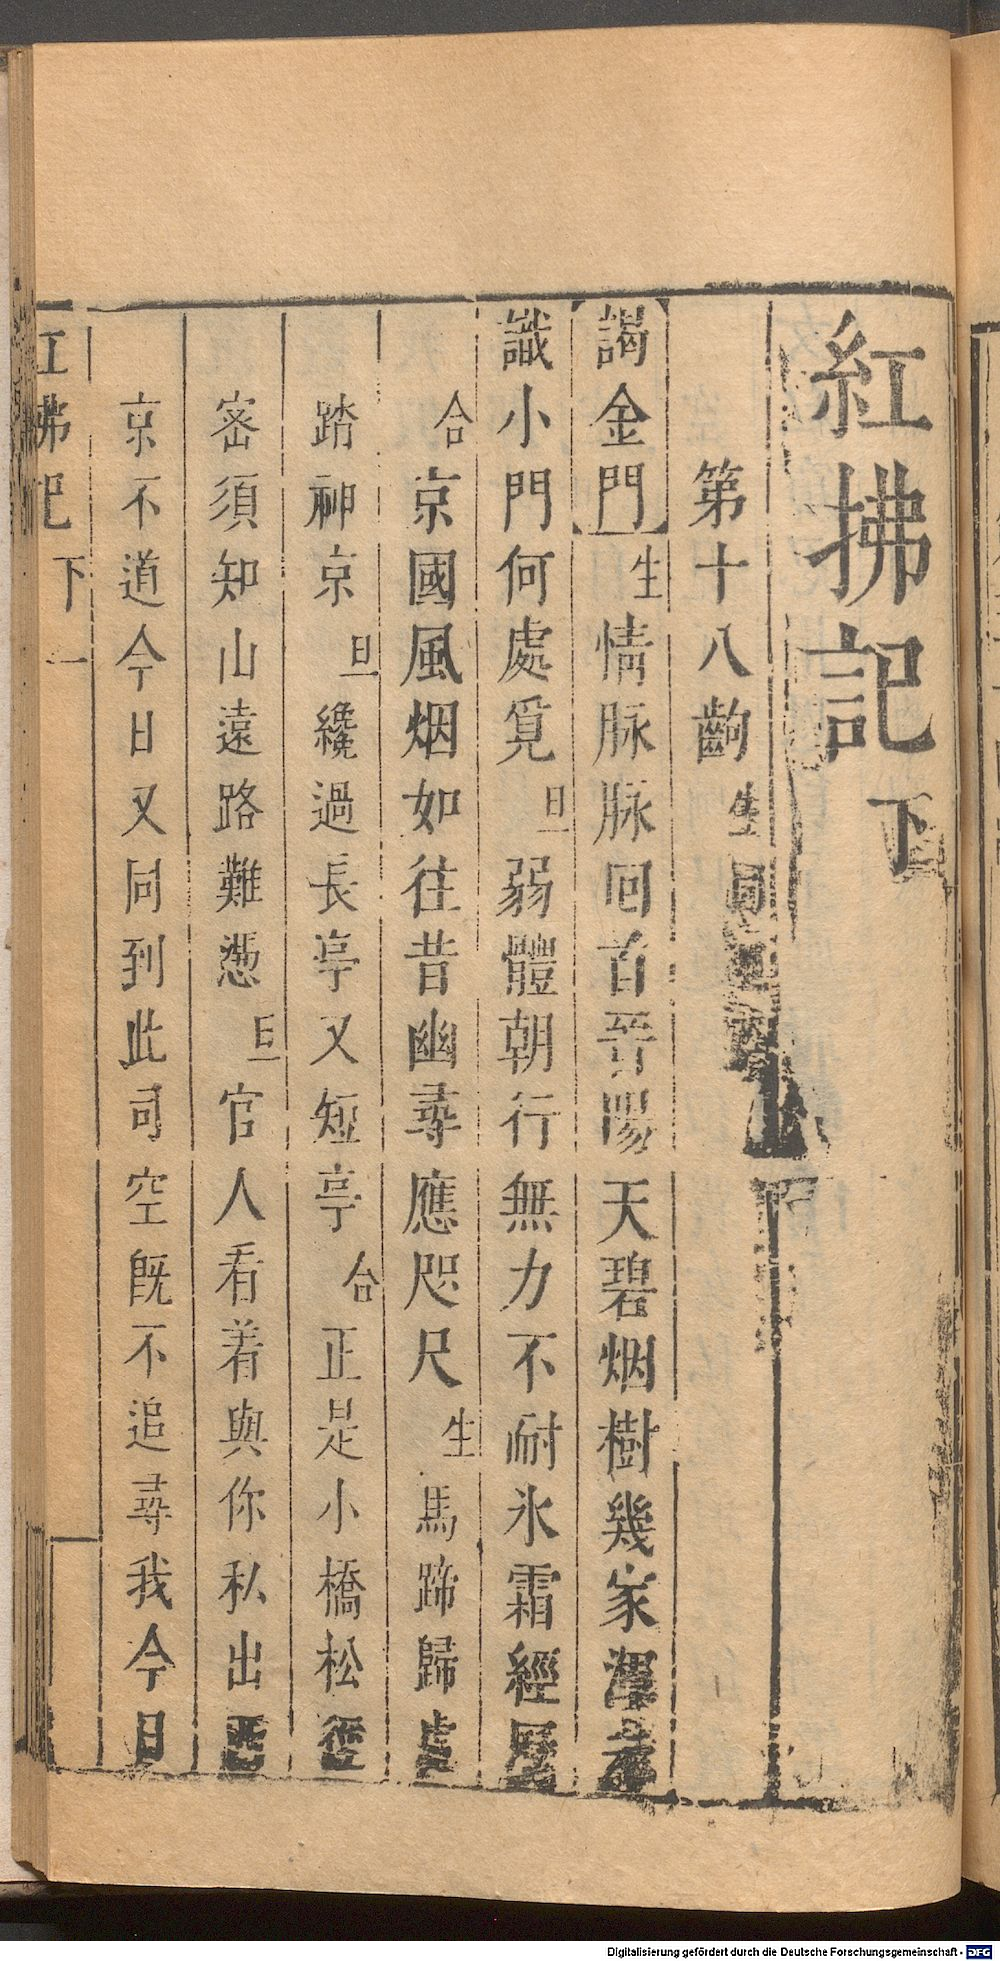 紅拂記 下
第十八齣 生同
謁金門 生 情脉脉囘首晉陽天碧烟樹幾家渾
識小門何處覓 旦 弱體朝行無力不耐氷霜經歷
合 京國風烟如往昔幽尋應咫尺 生 馬蹄歸處
踏神京 旦 纔過長亭又短亭 合 正是小橋松徑
密須知山遠路難慿 旦 官人看着與你私出西
京不道今日又同到此司空既不追尋我今日
紅拂記 下 一
Digitalisierung gefördert durch die Deutsche Forschungsgemeinschaft - DFG